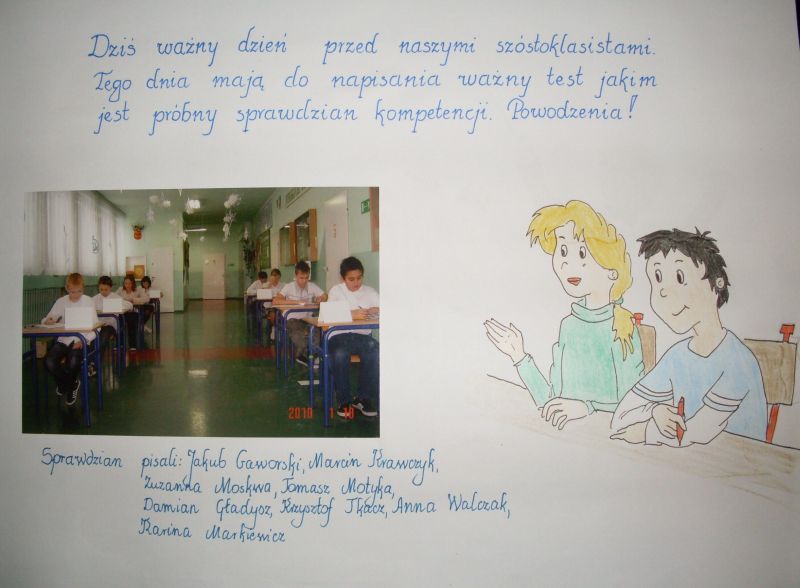 Dziś ważny dzień przed naszymi szóstoklasistami.
Tego dnia mają do napisania ważny test jakim
jest próbny sprawdzian kompetencji. Powodzenia!
2010 1 18
Sprawdzian pisali: Jakub Gaworski, Marcin Krawczyk,
Zuzanna Moskwa, Tomasz Motyka,
Damian Gładysz, Krzysztof Tkacz, Anna Walczak,
Karina Markiewicz